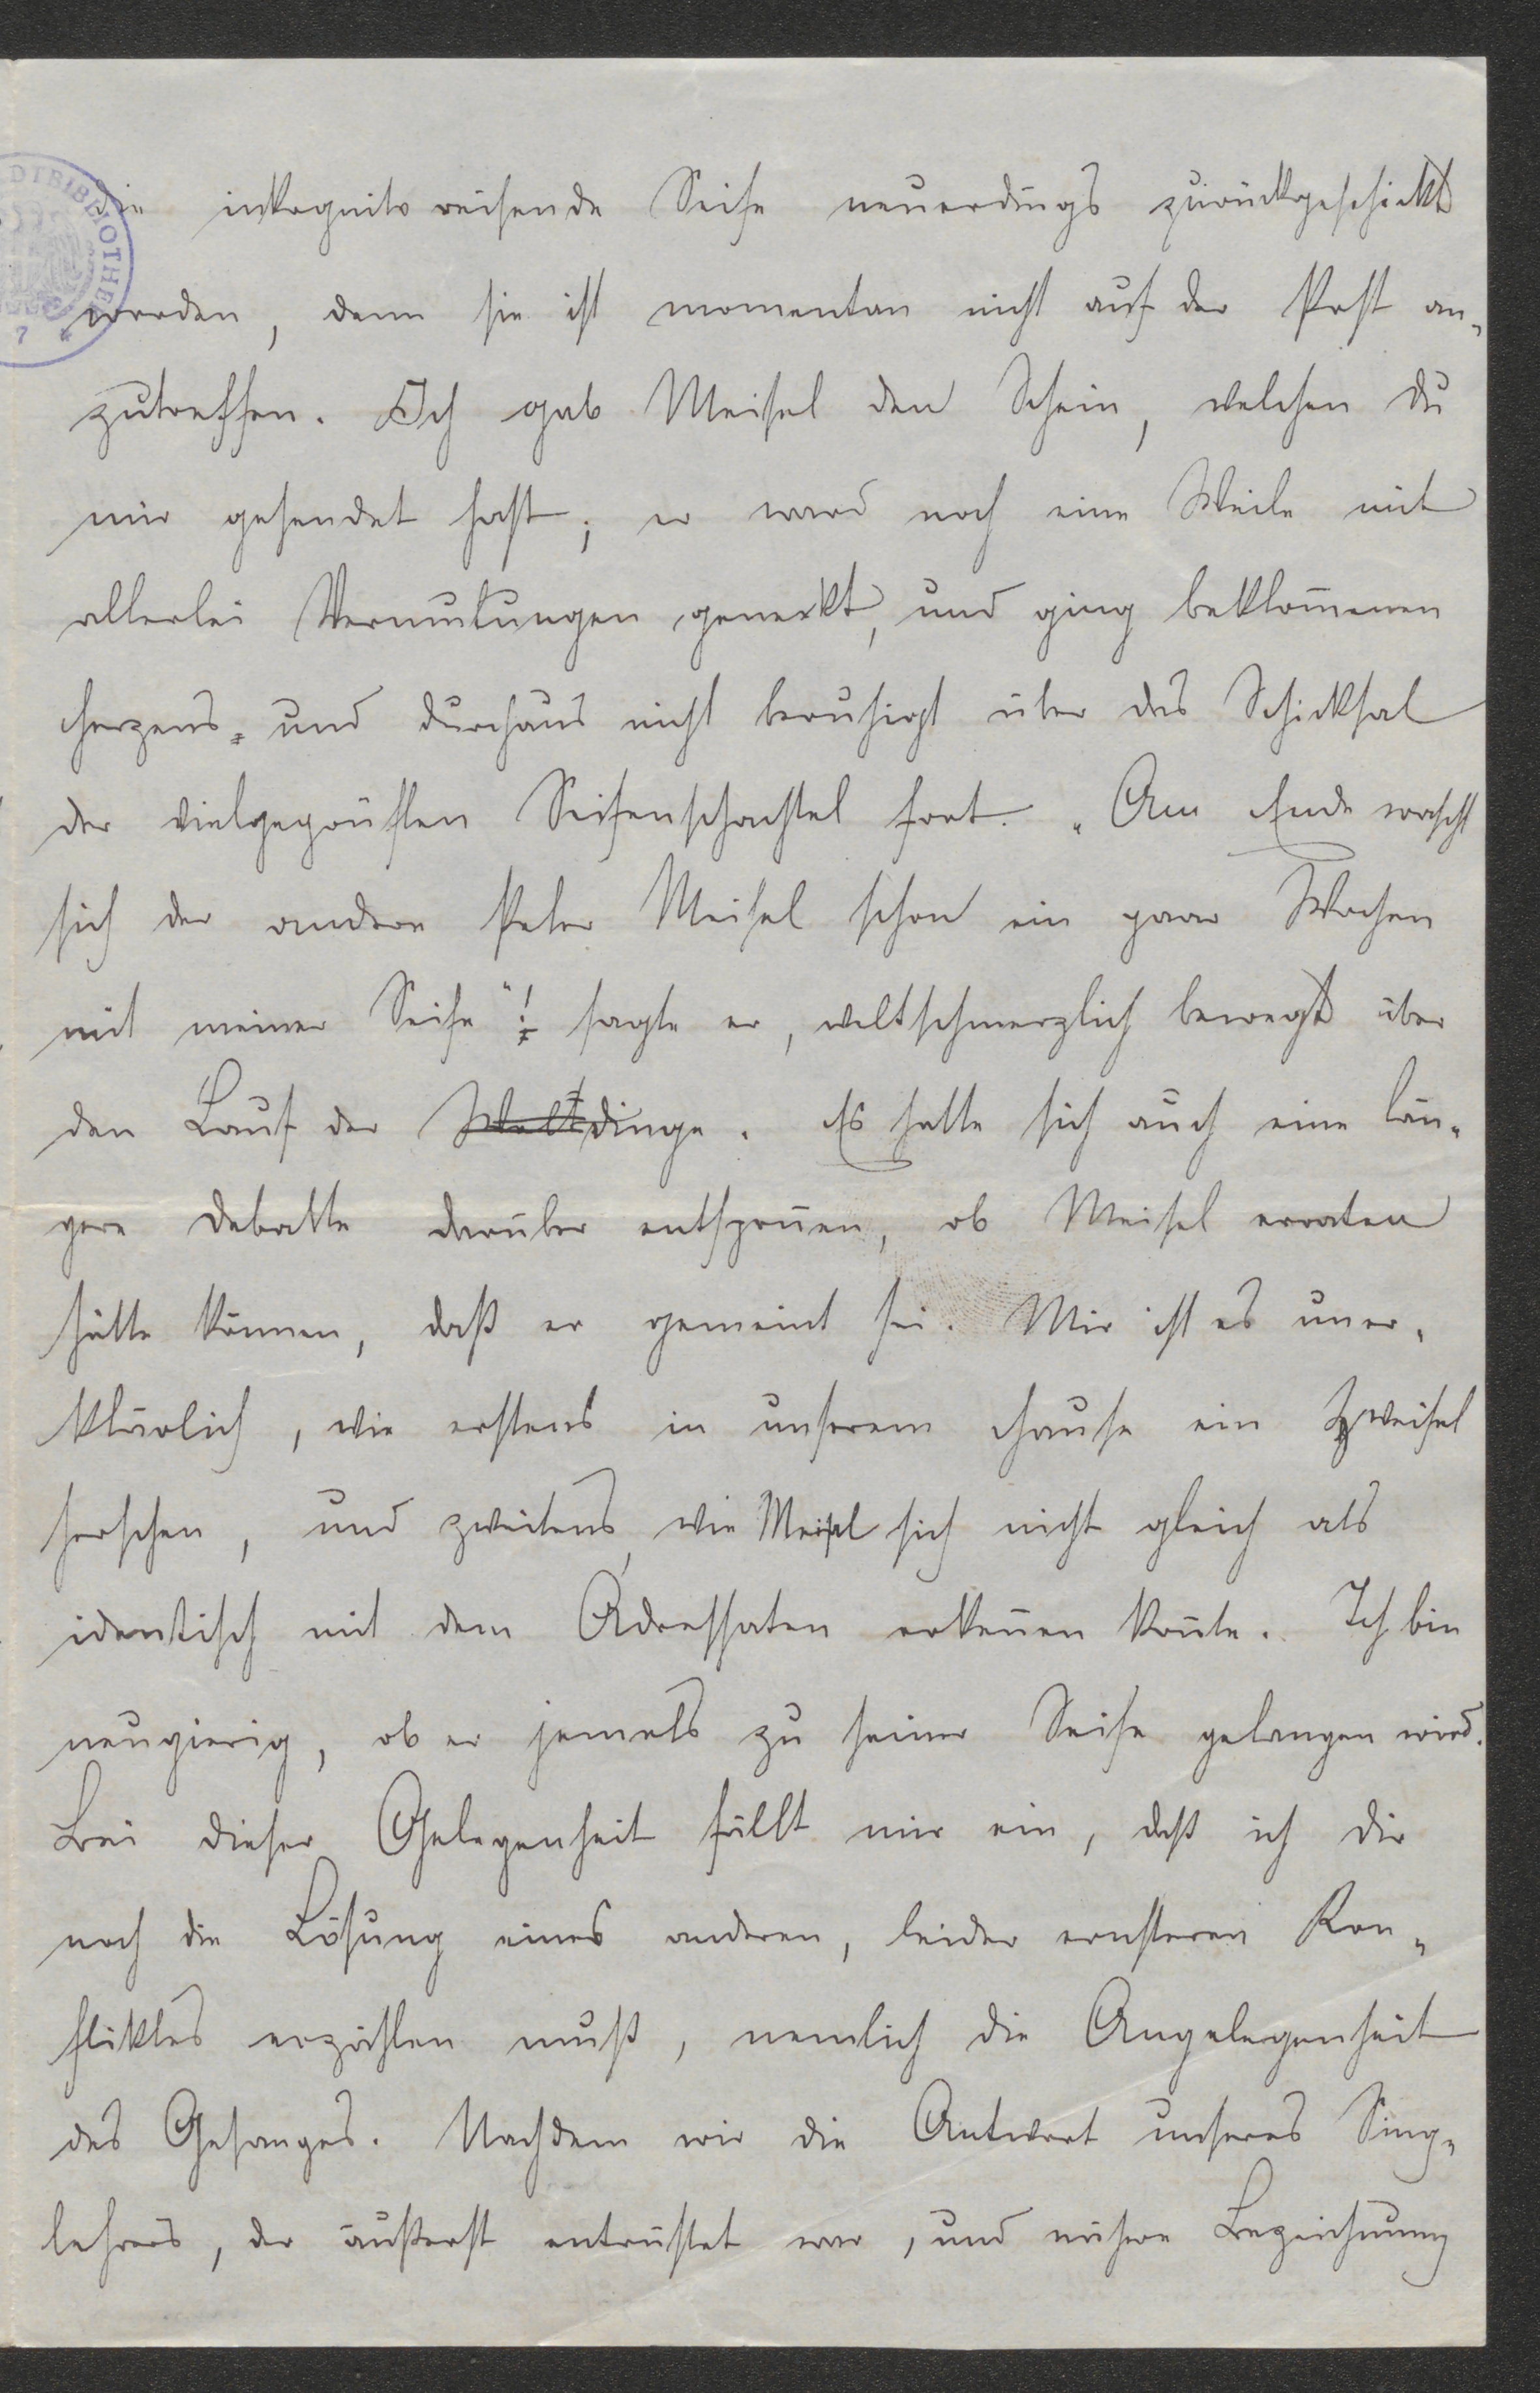 die inkognito reisende Seife neuerdings zurückgeschickt
worden, denn sie ist momentan nicht auf der Post an-
zutreffen. Ich gab Meisel den Schein, welchen du
mir gesendet hast; er ward noch eine Weile mit
allerlei Vermutungen geneckt, und ging beklom̄enen
Herzens, und durchaus nicht beruhigt über das Schicksal
der vielgeprüften Seifenschachtel fort. „Am Ende wascht
sich der andere Peter Meisel schon ein paar Wochen
mit meiner Seife"! sagte er, weltschmerzlich bewegt über
den Lauf der Weltdinge. Es hatte sich auch eine län-
gere Debatte darüber entspon̄en, ob Meisel erraten
hätte können, daß er gemeint sei. Mir ist es uner-
klärlich, wie erstens in unserem Hause ein Zweifel
herschen, und zweitens, wie Meisel sich nicht gleich als
identisch mit dem Adressaten erken̄en kon̄te. Ich bin
neugierig, ob er jemals zu seiner Seife gelangen wird.
Bei dieser Gelegenheit fällt mir ein, daß ich dir
noch die Lösung eines anderen, leider ernsteren Kon-
fliktes erzählen muß, nemlich die Angelegenheit
des Gesanges. Nachdem wir die Antwort unseres Sing-
lehrers, der äußerst entrüstet war, und nähere Bezeichnung
DTBIBLIOTHEK
7